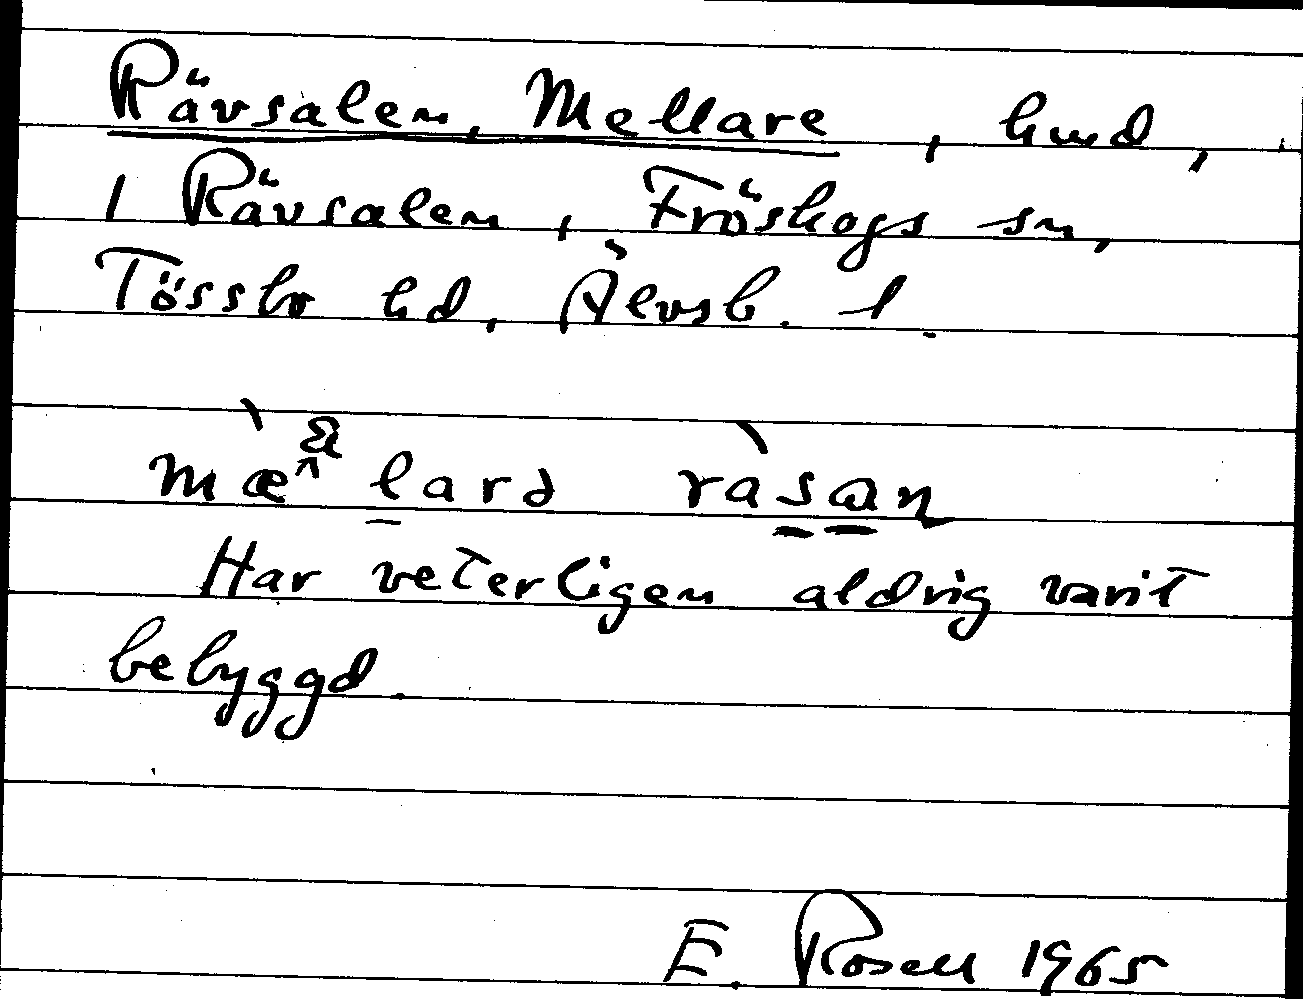 Rävsalen, Mellare, hmd,
1 Rävsalen, Fröskogs sn,
Tössbo hd, Älvsb. l.
Har veterligen aldrig varit
bebyggd.
E. Rosell 1965